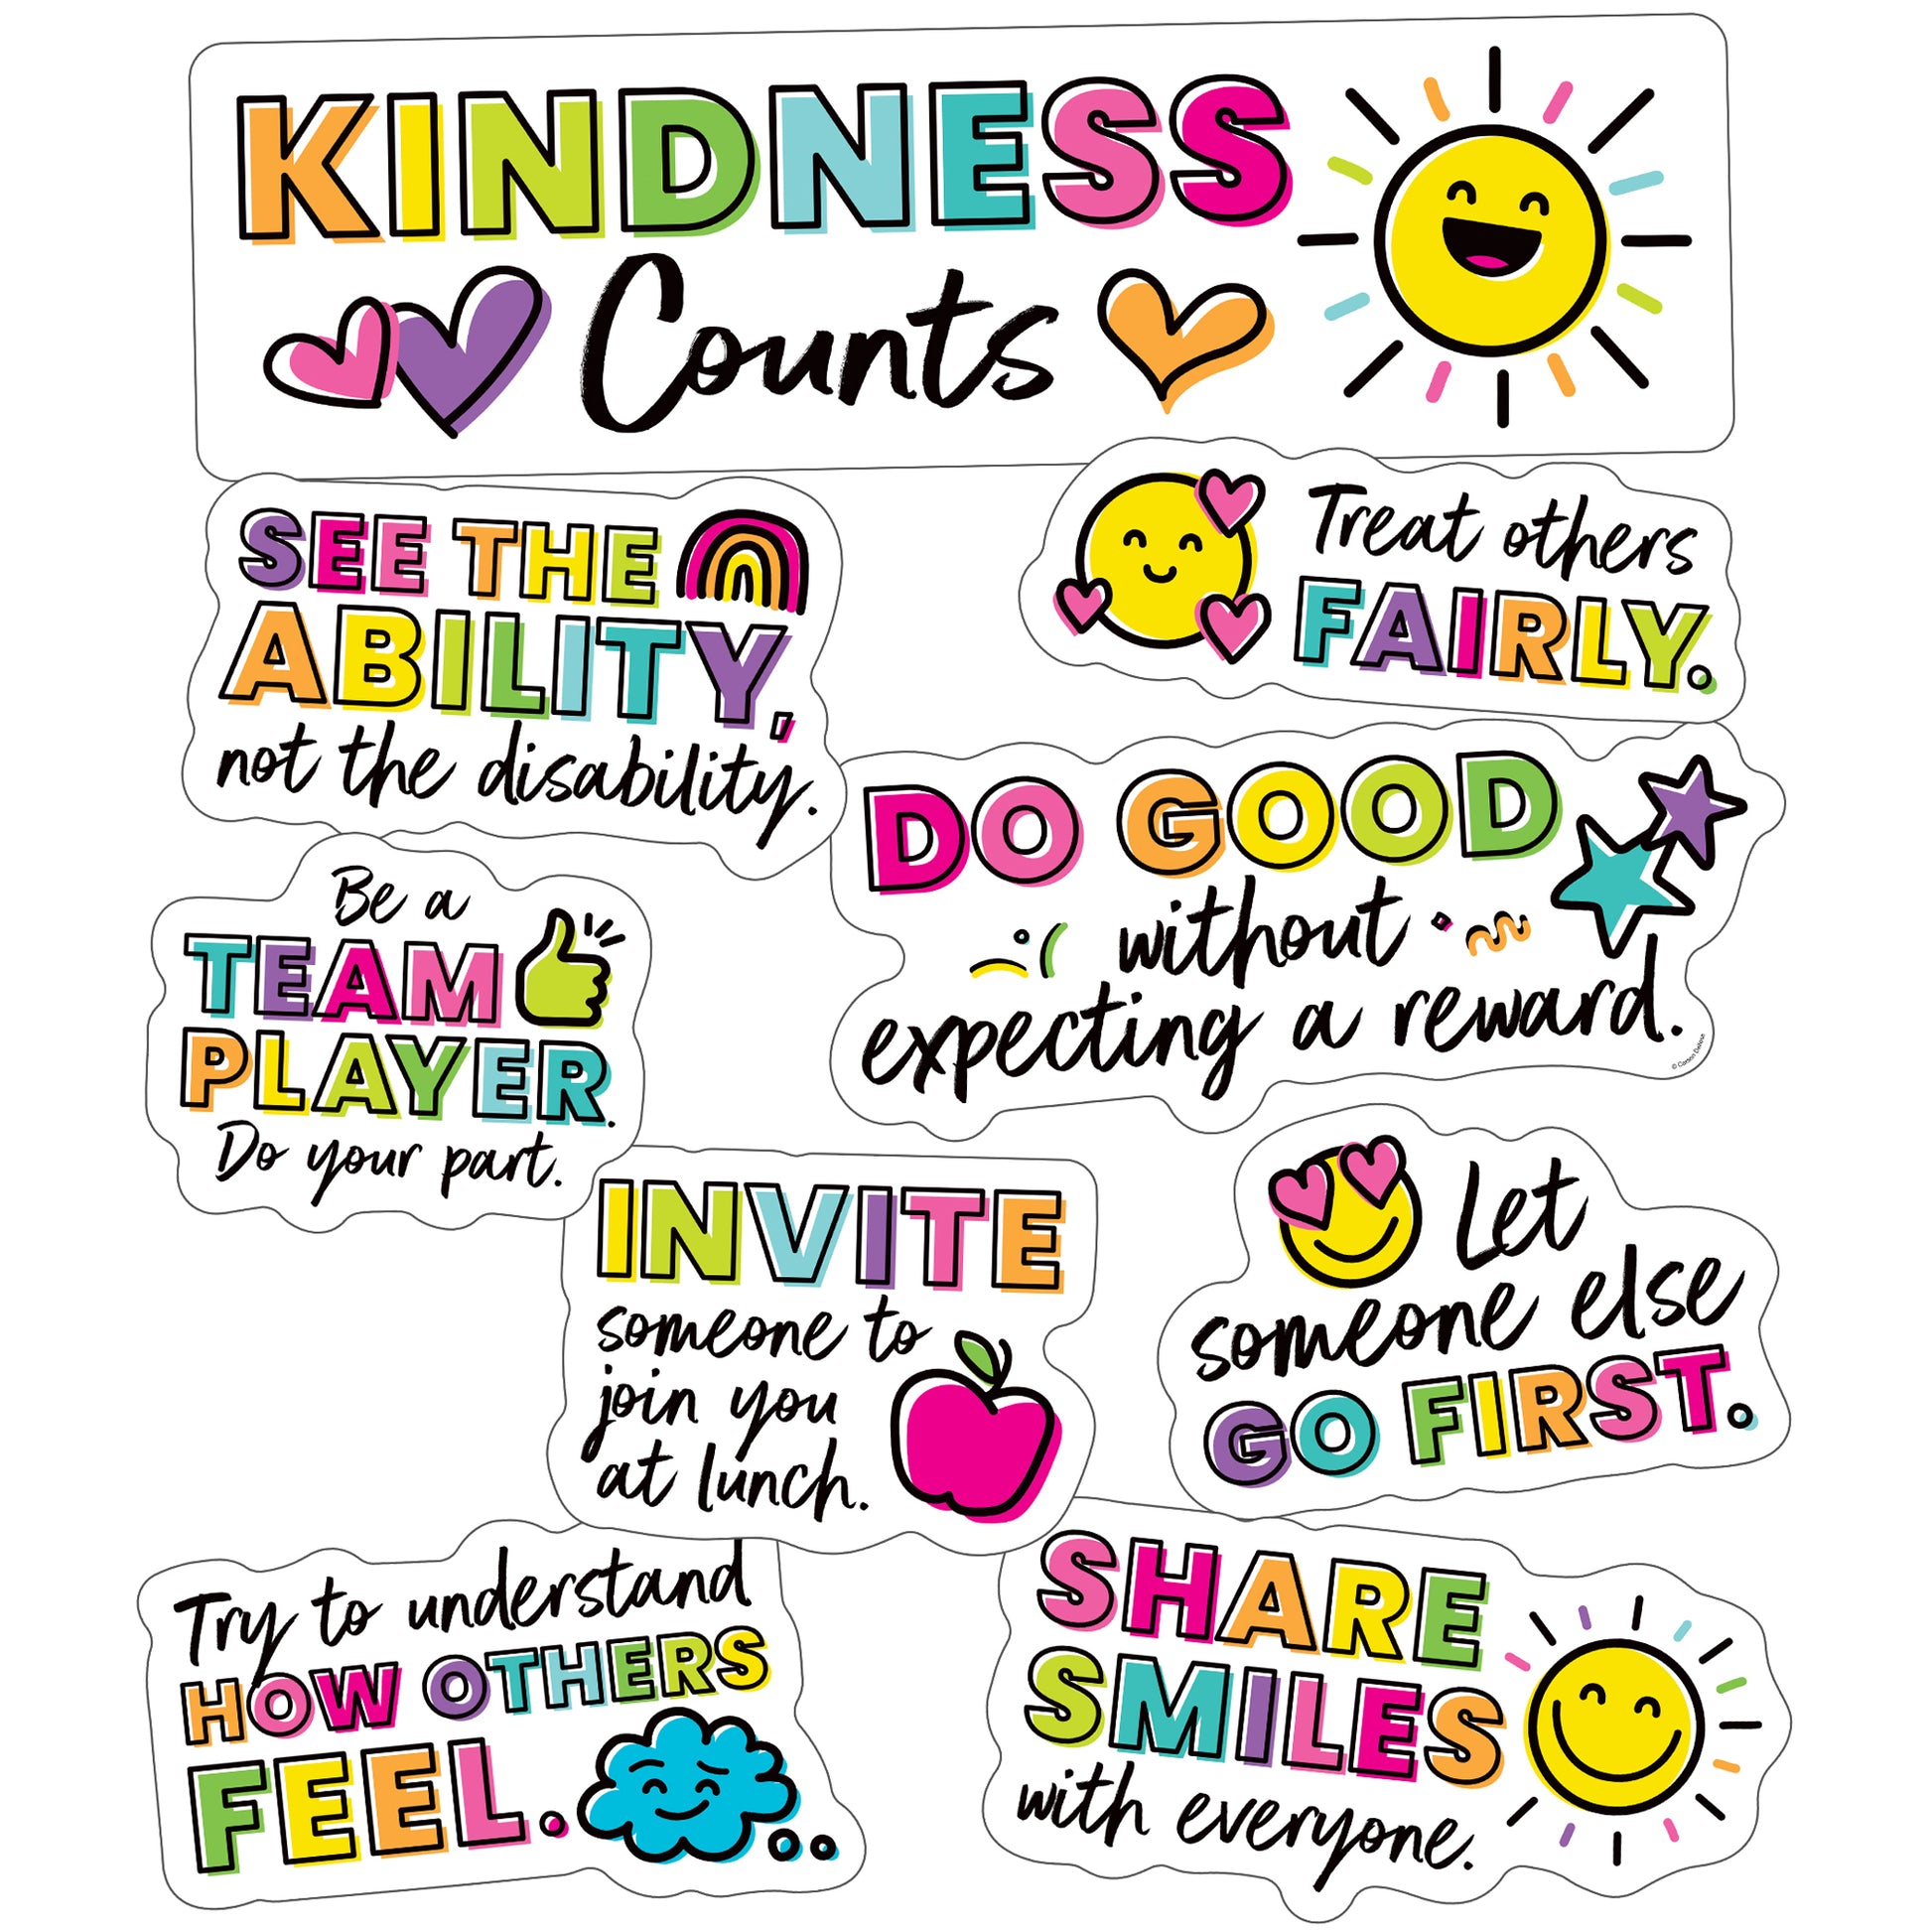 KINDNESS
Counts
SEE THE
ABILITY,
not the disability.
Treat others
FAIRLY.
DO GOOD
without
expecting a reward.
© Carson Dellosa
Be a
TEAM
PLAYER.
Do your part.
INVITE
someone to
join you
at lunch.
Let
someone else
GO FIRST.
Try to understand
HOW OTHERS
FEEL.
SHARE
SMILES
with everyone.